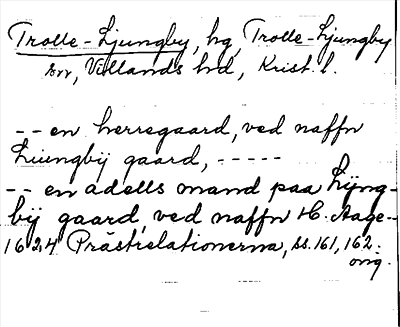 Trolle-Ljungby, hg, Trolle-Ljungby
sn, Villands hd, Krist. l.
-- en herregaard, ved naffn
Liungbÿ gaard, -----
-- en adells mand paa Lÿng-
bÿ gaard, ved naffn H. Aage-
1624 Prästrelationerna, ss. 161, 162.
orig.